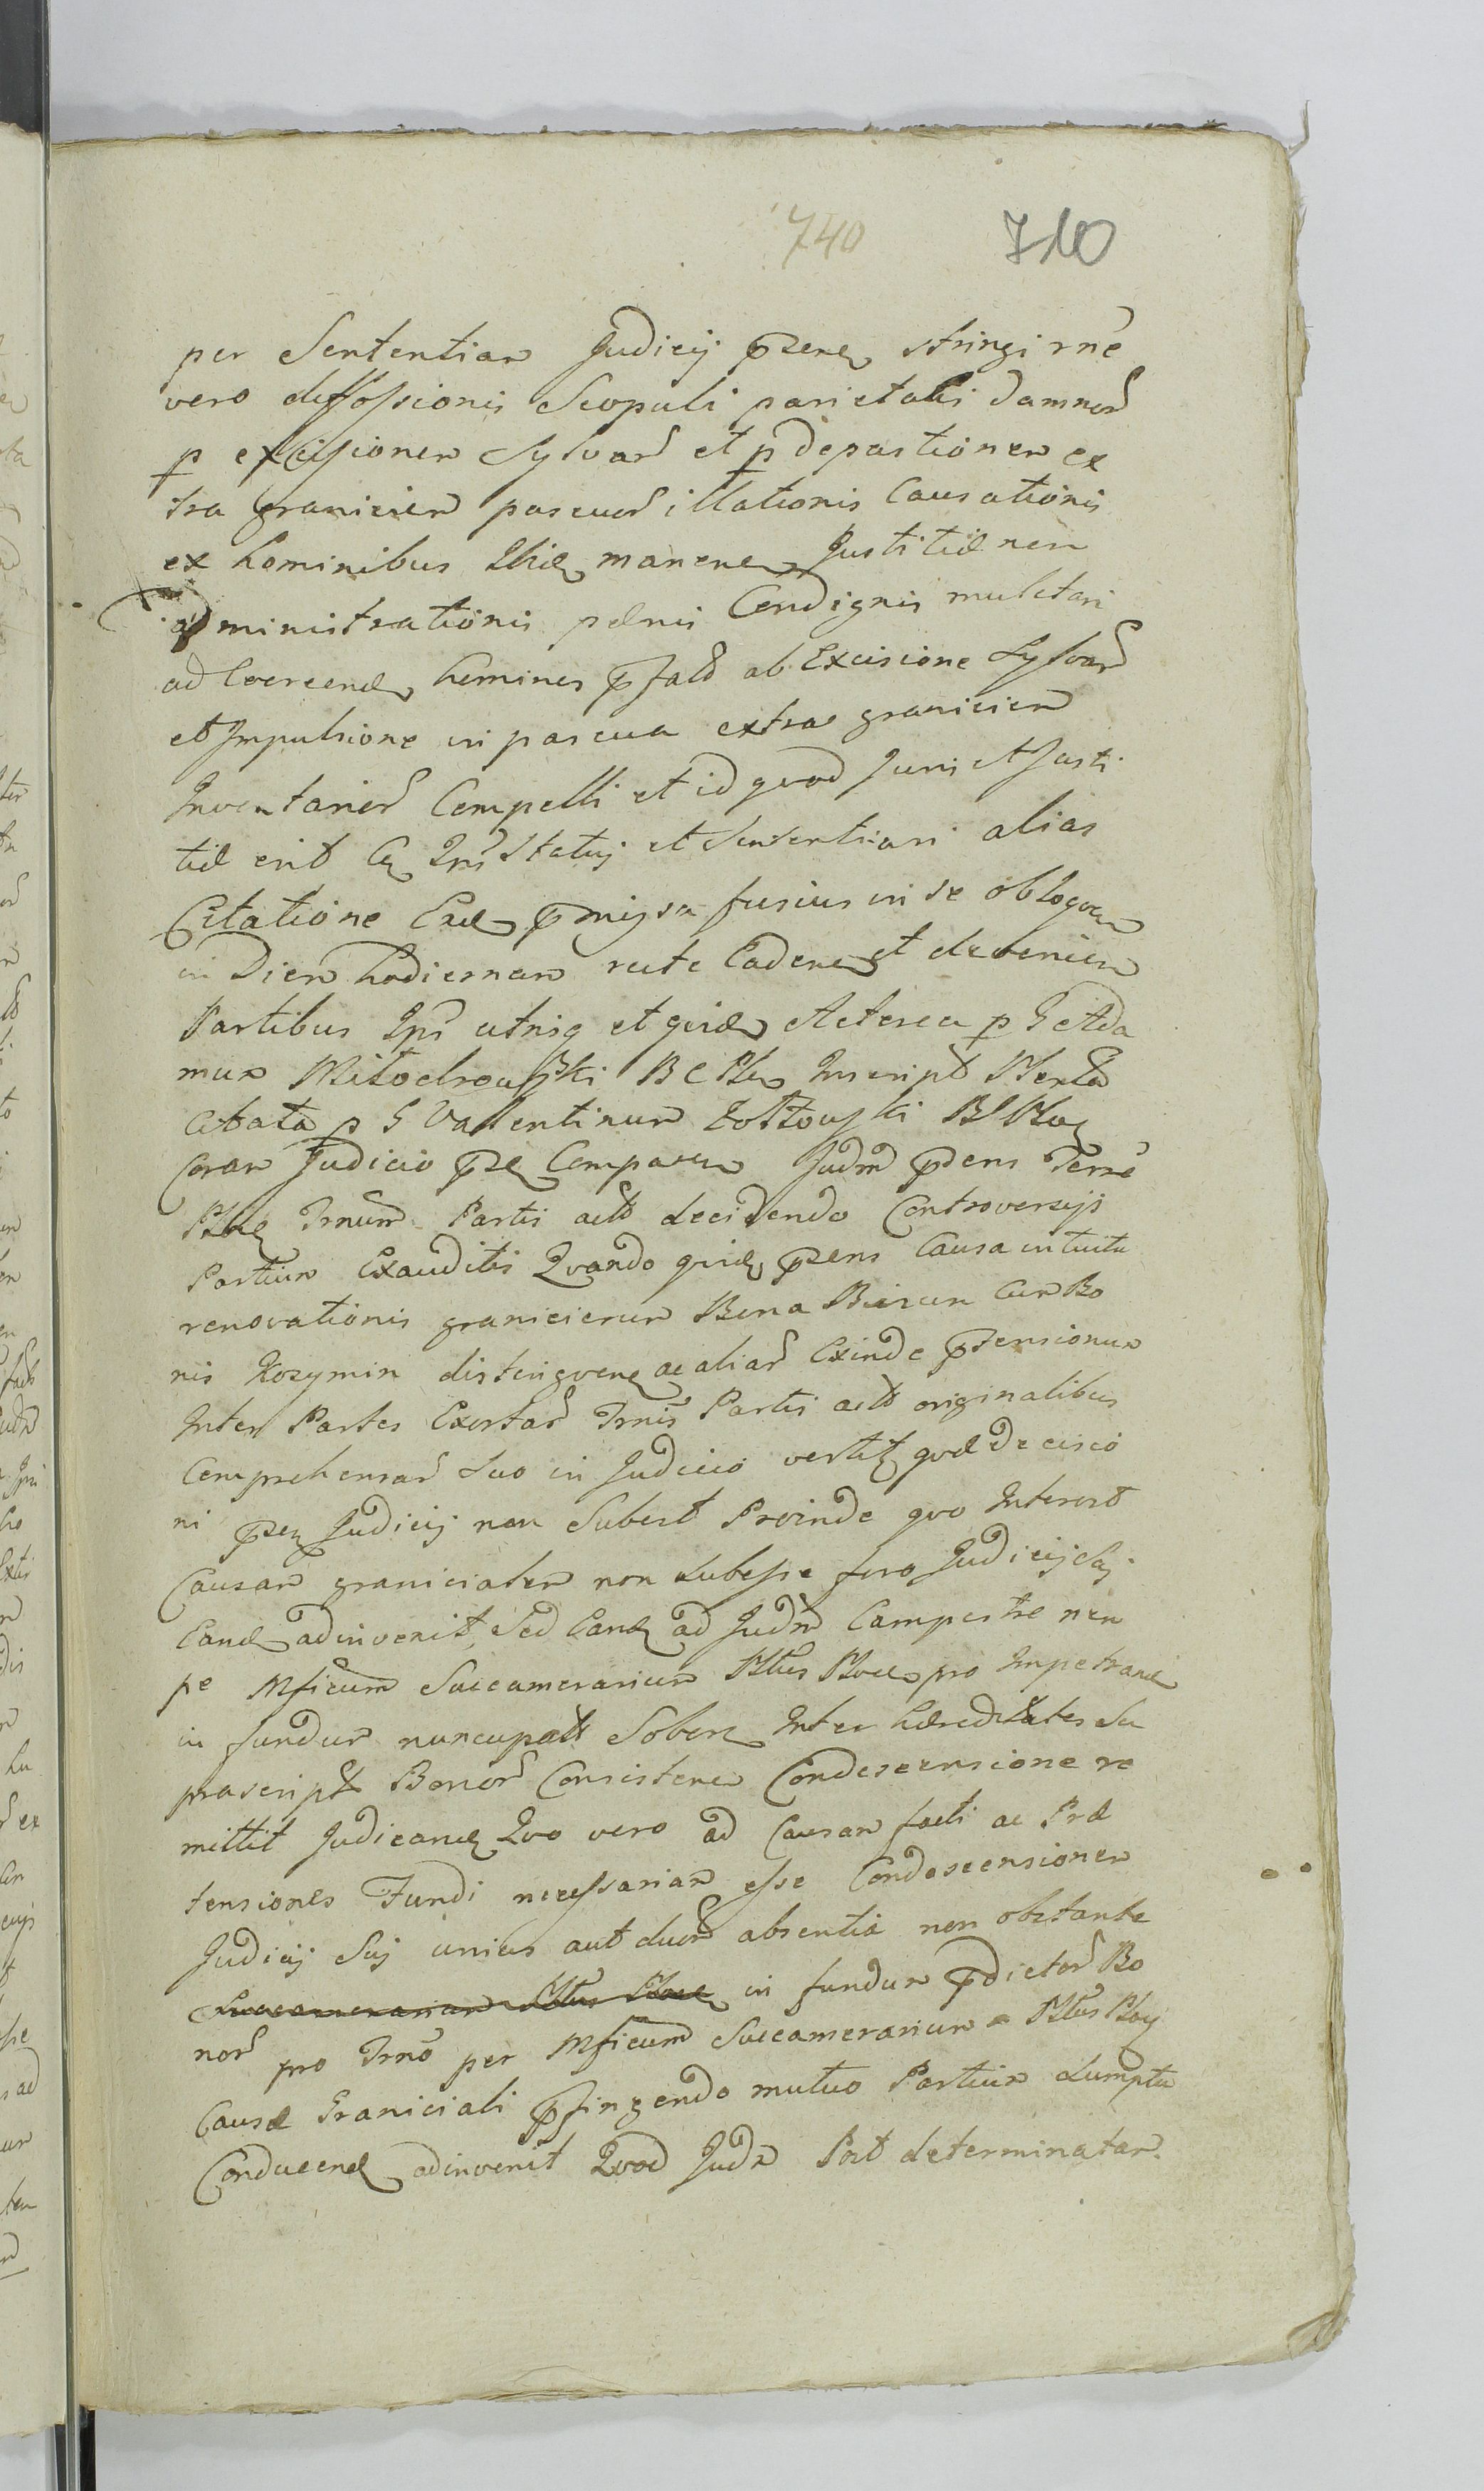 740 710
per Sententiam Judicij pzene stringi rne
vero deffossionis Scopuli parietalis Damnor
p excisionem Sylvar et p depastionem ex
tra graniciem pascuor illationis Causationis
ex hominibus Ibid manen Justitiæ non
administrationis pænis Condignis mulctari
ad Coercend homines pfato ab Excisione Sylvar
et Impulsione in pascua extra graniciem
Inventarior Compelli et id quod Juris et Justi
tiæ erit Statuj et Sententiari alias
Citatione pmissa fusius in se obloquen
in Diem hodiernam recte Caden et devenien
Partibus Ipis utrisq et quid Actorea p G Ada
mum Mitochowski Inscript
Citata p G Vallentinum Zołtowski
Coram Judicio pse Comparen Judm pdens Terre
Trnum Partis acto decidendo Controversijs
Partium Exauditis Quando quid pzens Causa intuitu
renovationis granicierum Bona Biezun Cum Bo
nis Kozymin distingven ac aliar Exinde ptensionum
Inter Partes Exortar Trnis Partis acto originalibus
Comprehensar Suo in Judicio vertit quæ Decisio
ni pzen Judicij non Subest Proinde quo Interest
Causam granicialem non Subesse foro Judicij Suj
Eand adinvenit, Sed Eand ad Judm Campestre nem
pe Mficum Succamerarium pro Impetrand
in fundum nuncupato Sobern Inter hæreditates Su
prascript Bonor Consisten Condescensione re
mittit Judicand Quo vero ad Causam facti ac Præ
tensiones Fundi necessariam esse Condescensionem
Judicij Suj unius aut duor absentia non obstante
in fundum pdictor Bo
nor pro Trno per Mficum Succamerarium
Causæ Graniciali pfingendo mutuo Partium Sumptu
Conducend adinvenit Quod Judm Post determinatam